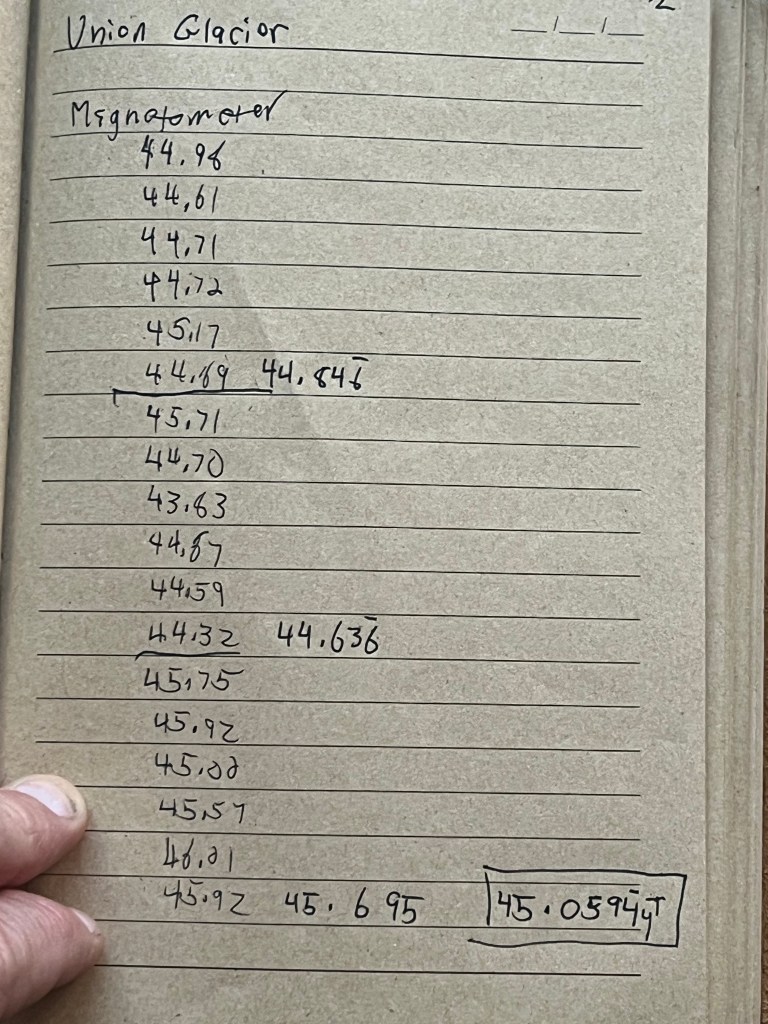 Union Glacier
__/__/__
Magnotometer
44.98
44.61
44.71
44.72
45.17
44.89 44.846̄
45.71
44.70
43.63
44.87
44.59
44.32 44.636̄
45.75
45.92
45.00
45.57
46.01
45.92 45.695 45.0594̄μT